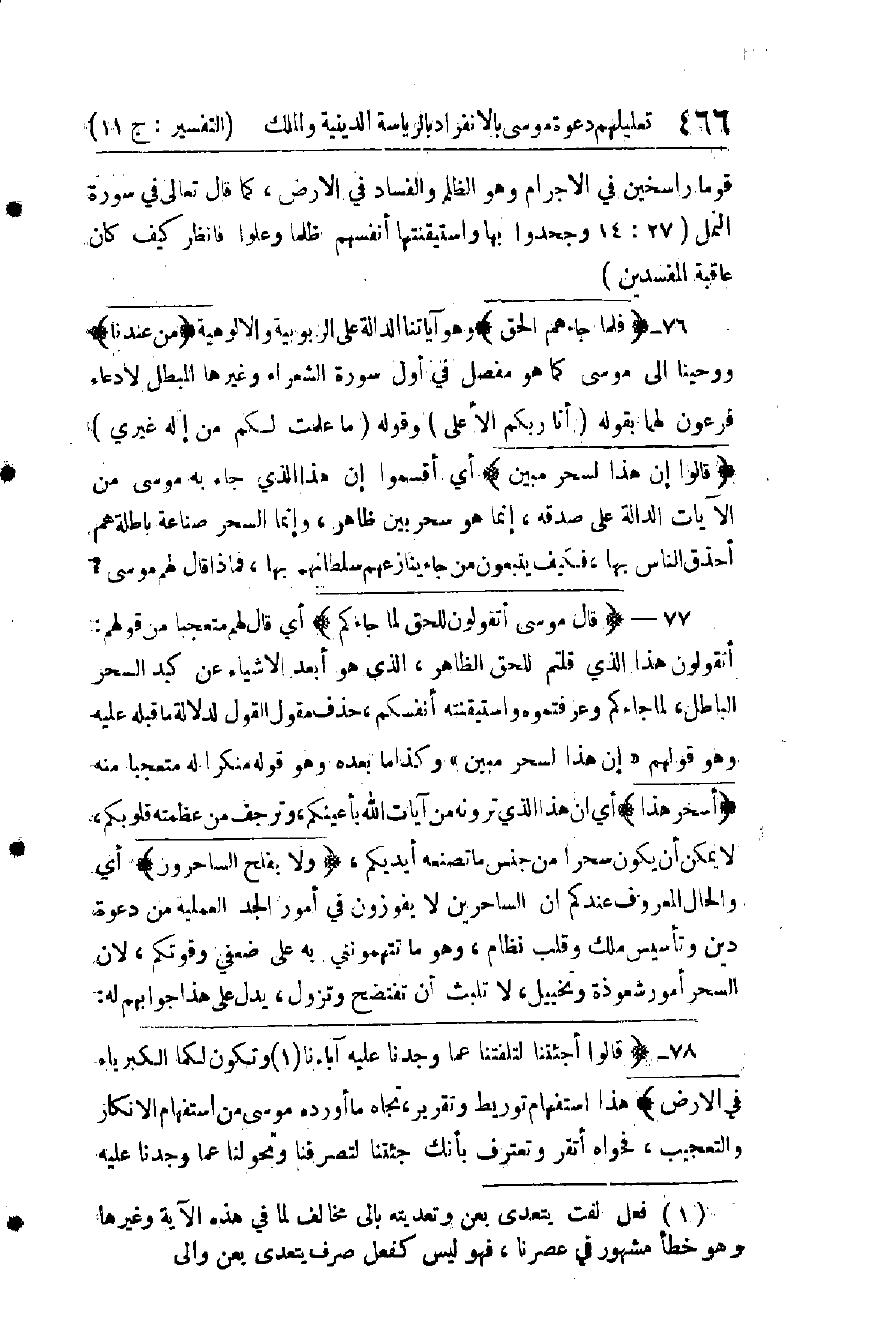 ٤٦٦ تعليلهم دعوة موسى بالانفراد بالرياسة الدينية والملك (التفسير : ج ١١)
قوما راسخين في الاجرام وهو الظلم والفساد في الارض ، كما قال تعالى في سورة
النمل ( ٢٧ : ١٤ وجحدوا بها واستيقنتها أنفسهم ظلما وعلوا فانظر كيف كان
عاقبة المفسدين )
٧٦ـ ﴿ فلما جاءهم الحق ﴾ وهو آياتنا الدالة على الربوبية والالوهية ﴿من عندنا﴾
ووحينا الى موسى كما هو مفصل في أول سورة الشعراء وغيرها المبطل لادعاء
فرعون لهما بقوله ( أنا ربكم الأعلى ) وقوله ( ما علمت لكم من إله غيري )
﴿ قالوا إن هذا لسحر مبين ﴾ أي أقسموا إن هذا الذي جاء به موسى من
الآيات الدالة على صدقه ، إنما هو سحر بين ظاهر ، وإنما السحر صناعة باطلة هم
أحذق الناس بها ، فكيف يتبعون من جاء ينازعهم سلطانهم بها ، فماذا قال لهم موسى ؟
٧٧ — ﴿ قال موسى أتقولون للحق لما جاءكم ﴾ أي قال لهم متعجبا من قولهم :
أتقولون هذا الذي قلتم للحق الظاهر ، الذي هو أبعد الاشياء عن كيد السحر
الباطل، لما جاءكم وعرفتموه واستيقنته أنفسكم ، حذف مقول القول لدلالة ما قبله عليه
وهو قولهم « إن هذا لسحر مبين » وكذا ما بعده وهو قوله منكرا له متعجبا منه
﴿أسحر هذا﴾ أي ان هذا الذي ترونه من آيات الله بأعينكم، وترجف من عظمته قلوبكم،
لا يمكن أن يكون سحرا من جنس ما تصنعه أيديكم ، ﴿ ولا يفلح الساحرون ﴾ أي
والحال المعروف عندكم ان الساحرين لا يفوزون في أمور الجد العملية من دعوة
دين وتأسيس ملك وقلب نظام ، وهو ما تتهمونني به على ضعفي وقوتكم ، لان
السحر أمور شعوذة وتخييل، لا تلبث أن تفتضح وتزول ، يدل على هذا جوابهم له :
٧٨ـ ﴿ قالوا أجئتنا لتلفتنا عما وجدنا عليه آباءنا (١) وتكون لكما الكبرياء
في الارض ﴾ هذا استفهام توريط وتقرير، تجاه ما أورده موسى من استفهام الانكار
والتعجيب ، فحواه أتقر وتعترف بأنك جئتنا لتصرفنا وتحولنا عما وجدنا عليه
(١) فعل لفت يتعدى بعن وتعديته بالى مخالف لما في هذه الآية وغيرها
وهو خطأ مشهور في عصرنا ، فهو ليس كفعل صرف يتعدى بعن والى